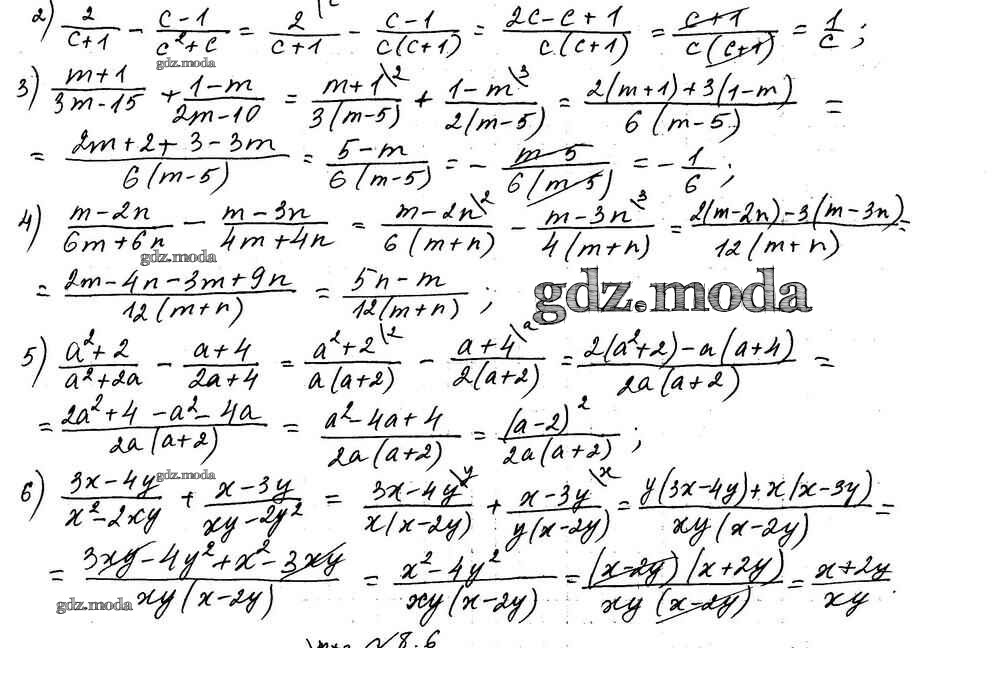 2) 2/(c+1) - (c-1)/(c²+c) = 2\c/(c+1) - (c-1)/(c(c+1)) = (2c-c+1)/(c(c+1)) = (c+1)/(c(c+1)) = 1/c ;
gdz.moda
3) (m+1)/(3m-15) + (1-m)/(2m-10) = (m+1\2)/(3(m-5)) + (1-m\3)/(2(m-5)) = (2(m+1)+3(1-m))/(6(m-5)) =
= (2m+2+3-3m)/(6(m-5)) = (5-m)/(6(m-5)) = - (m-5)/(6(m-5)) = - 1/6 ;
4) (m-2n)/(6m+6n) - (m-3n)/(4m+4n) = (m-2n\2)/(6(m+n)) - (m-3n\3)/(4(m+n)) = (2(m-2n)-3(m-3n))/(12(m+n)) =
gdz.moda
= (2m-4n-3m+9n)/(12(m+n)) = (5n-m)/(12(m+n)) ;
gdz.moda
5) (a²+2)/(a²+2a) - (a+4)/(2a+4) = (a²+2\2)/(a(a+2)) - (a+4\a)/(2(a+2)) = (2(a²+2)-a(a+4))/(2a(a+2)) =
= (2a²+4-a²-4a)/(2a(a+2)) = (a²-4a+4)/(2a(a+2)) = (a-2)²/(2a(a+2)) ;
gdz.moda
6) (3x-4y)/(x²-2xy) + (x-3y)/(xy-2y²) = (3x-4y\y)/(x(x-2y)) + (x-3y\x)/(y(x-2y)) = (y(3x-4y)+x(x-3y))/(xy(x-2y)) =
= (3xy-4y²+x²-3xy)/(xy(x-2y)) = (x²-4y²)/(xy(x-2y)) = ((x-2y)(x+2y))/(xy(x-2y)) = (x+2y)/(xy)
gdz.moda
№8.6